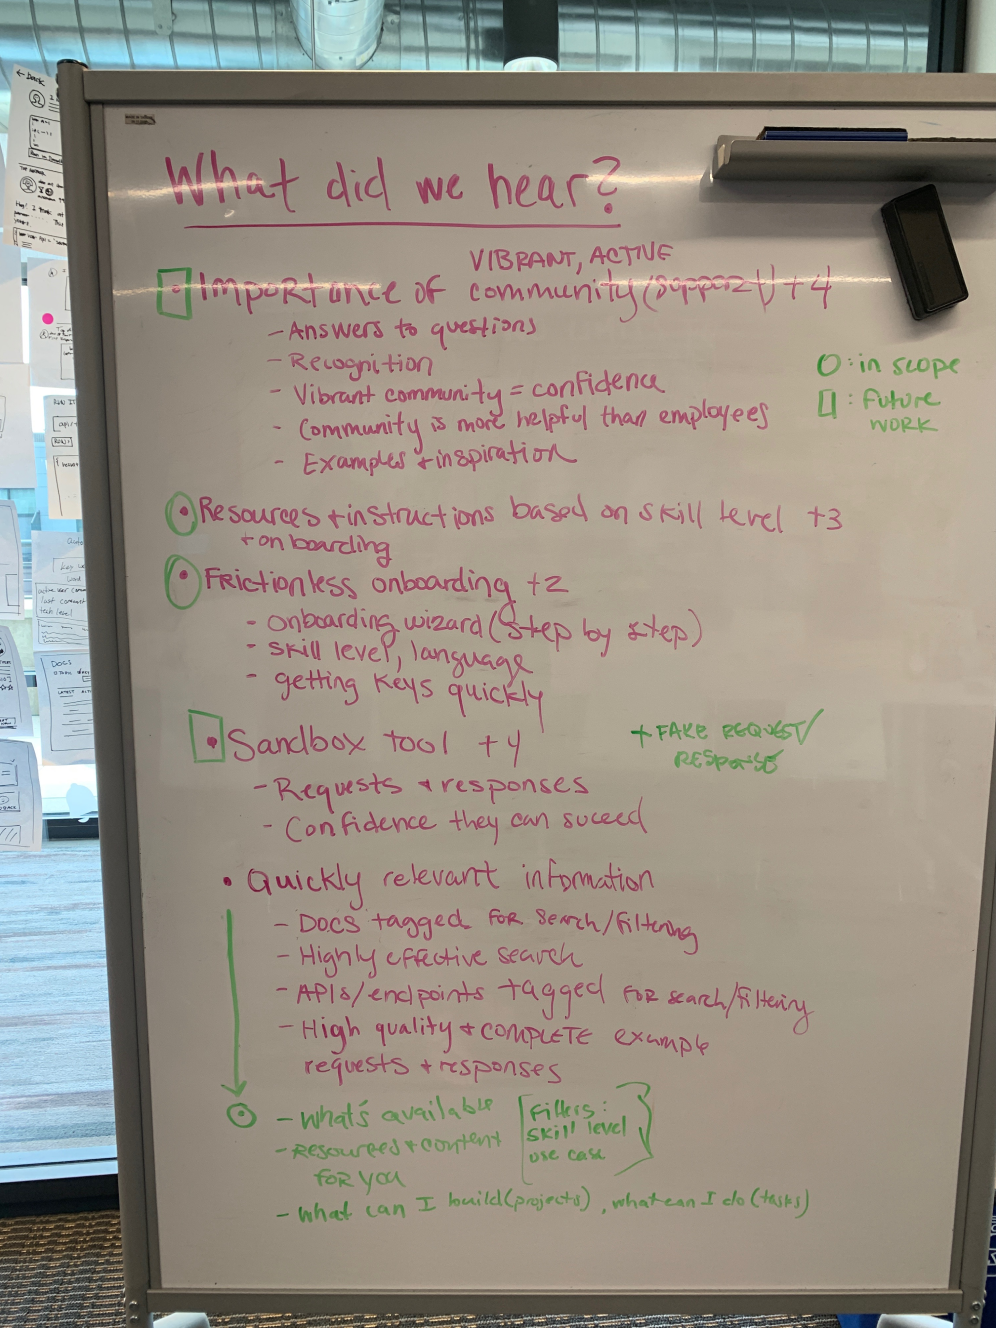 What did we hear?
VIBRANT, ACTIVE
Importance of community (support) +4
- Answers to questions
- Recognition
- Vibrant community = confidence
- Community is more helpful than employees
- Examples + inspiration
O : in scope
: future
work
• Resources + instructions based on skill level +3
+ onboarding
• Frictionless onboarding +2
- onboarding wizard (step by step)
- skill level, language
- getting keys quickly
• Sandbox tool +4
+ FAKE REQUEST/
RESPONSE
- Requests + responses
- Confidence they can suceed
• Quickly relevant information
- Docs tagged for search/filtering
- Highly effective search
- APIs/endpoints tagged for search/filtering
- High quality + COMPLETE example
requests + responses
- What's available
- Resources + content
for you
Filters:
skill level
use case
- What can I build (projects), what can I do (tasks)
DOCS